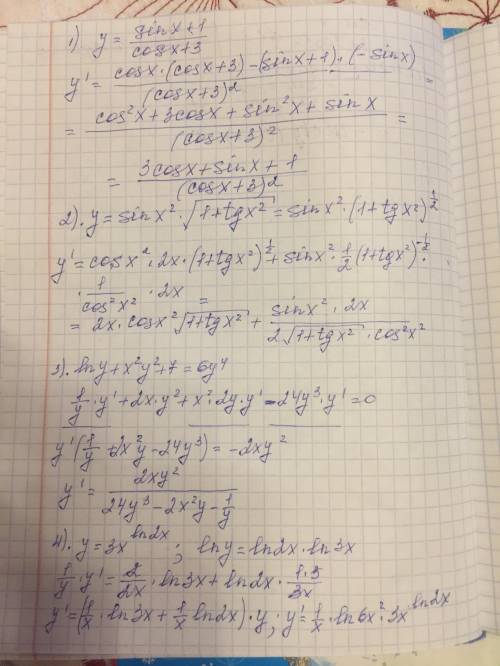 1) y = (sinx+1)/(cosx+3)
y' = (cosx·(cosx+3) - (sinx+1)·(-sinx))/(cosx+3)² =
= (cos²x + 3cosx + sin²x + sinx)/(cosx+3)² =
= (3cosx + sinx + 1)/(cosx+3)²
2). y = sinx²·√(1+tgx²) = sinx²·(1+tgx²)^(1/2)
y' = cosx²·2x·(1+tgx²)^(1/2) + sinx²·1/2(1+tgx²)^(-1/2)·
·1/(cos²x²)·2x =
= 2x·cosx²√(1+tgx²) + (sinx²·2x)/(2√(1+tgx²)·cos²x²)
3). lny + x²y² + 7 = 6y⁴
1/y·y' + 2x·y² + x²·2y·y' - 24y³·y' = 0
y'(1/y + 2x²y - 24y³) = -2xy²
y' = (2xy²)/(24y³ - 2x²y - 1/y)
4). y = 3x^(ln2x) ; lny = ln2x·ln3x
1/y·y' = 2/(2x)·ln3x + ln2x·(1·3)/(3x)
y' = (1/x·ln3x + 1/x ln2x)·y ; y' = 1/x·ln6x²·3x^(ln2x)